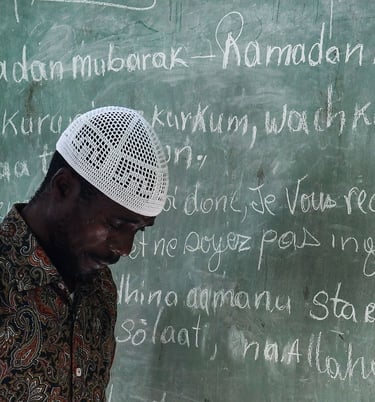 adan mubarak – Ramadan
kurkum, wachk
donc, Je Vous rec
et ne soyez pas ing
dhina aamanu sta
sôlaat, nnAllah